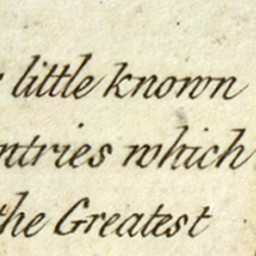 little known
ntries which
the Greatest